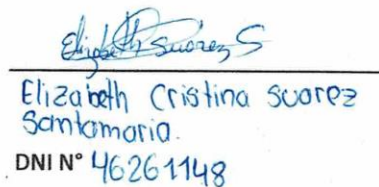 Elizabeth Suarez S
Elizabeth Cristina Suarez
Santamaria.
DNI N° 46261148